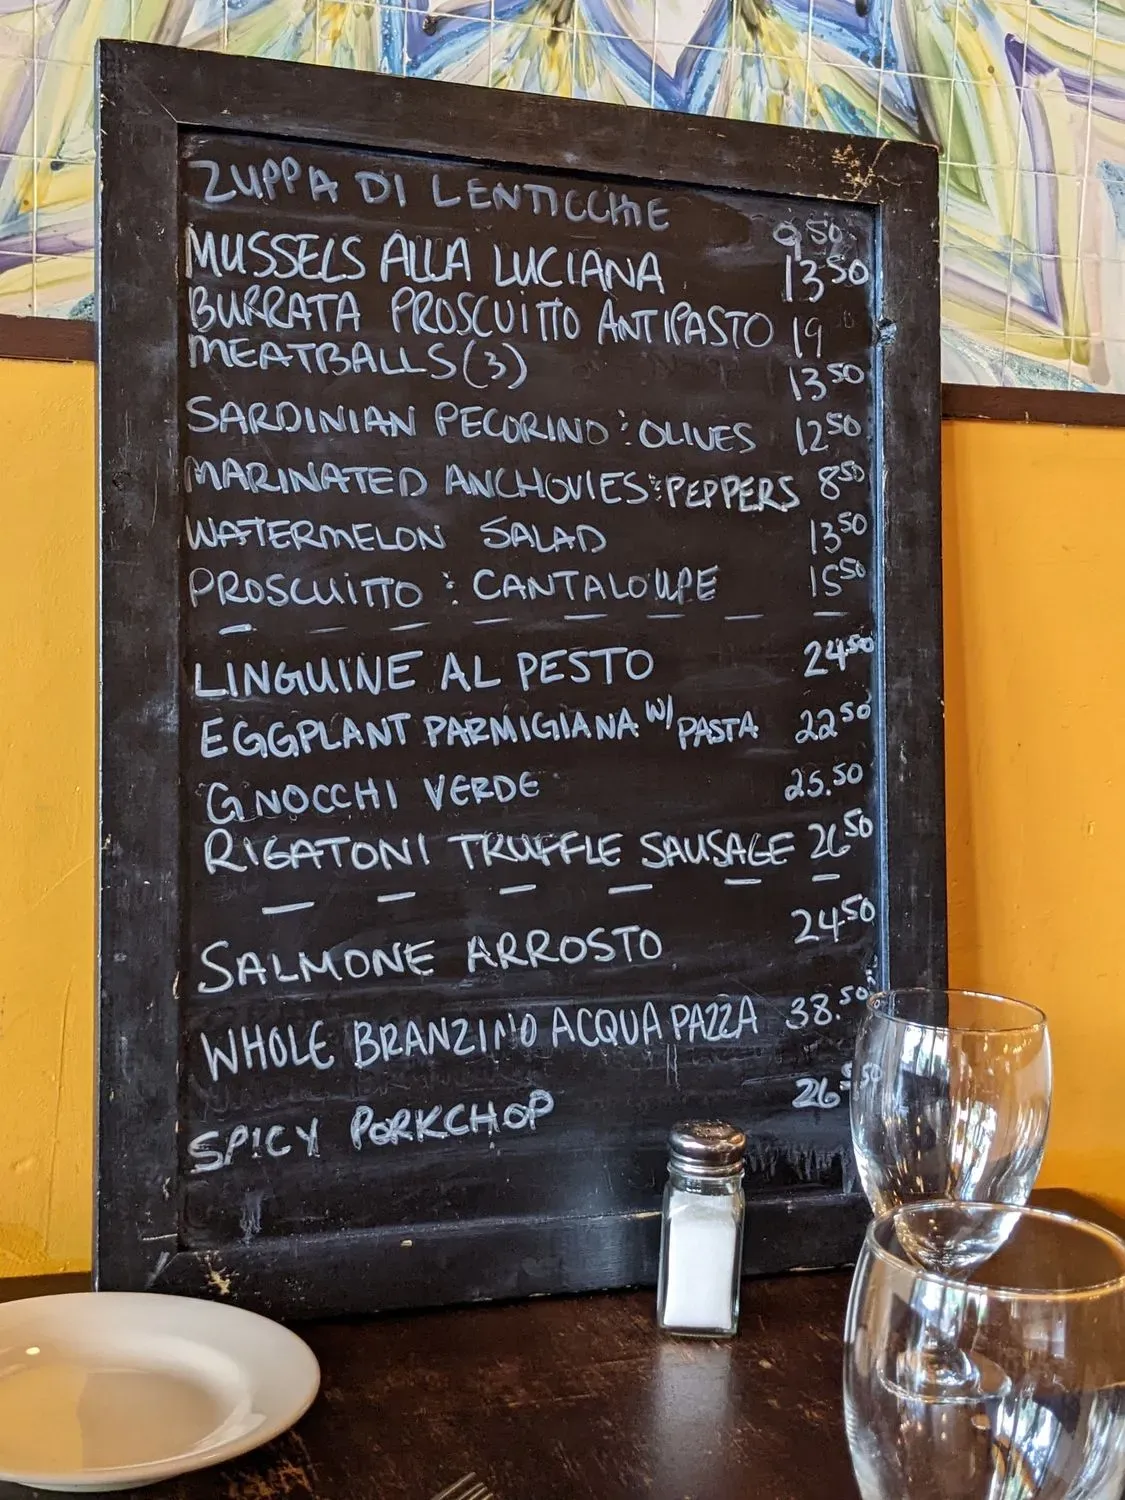 ZUPPA DI LENTICCHIE 9.50
MUSSELS ALLA LUCIANA 13 50
BURRATA PROSCUITTO ANTIPASTO 19
MEATBALLS (3) 13 50
SARDINIAN PECORINO : OLIVES 12 50
MARINATED ANCHOVIES : PEPPERS 8 50
WATERMELON SALAD 13 50
PROSCUITTO : CANTALOUPE 15 50
LINGUINE AL PESTO 24.50
EGGPLANT PARMIGIANA W/ PASTA 22 50
GNOCCHI VERDE 25.50
RIGATONI TRUFFLE SAUSAGE 26 50
SALMONE ARROSTO 24 50
WHOLE BRANZINO ACQUA PAZZA 38.50
SPICY PORKCHOP 26 50